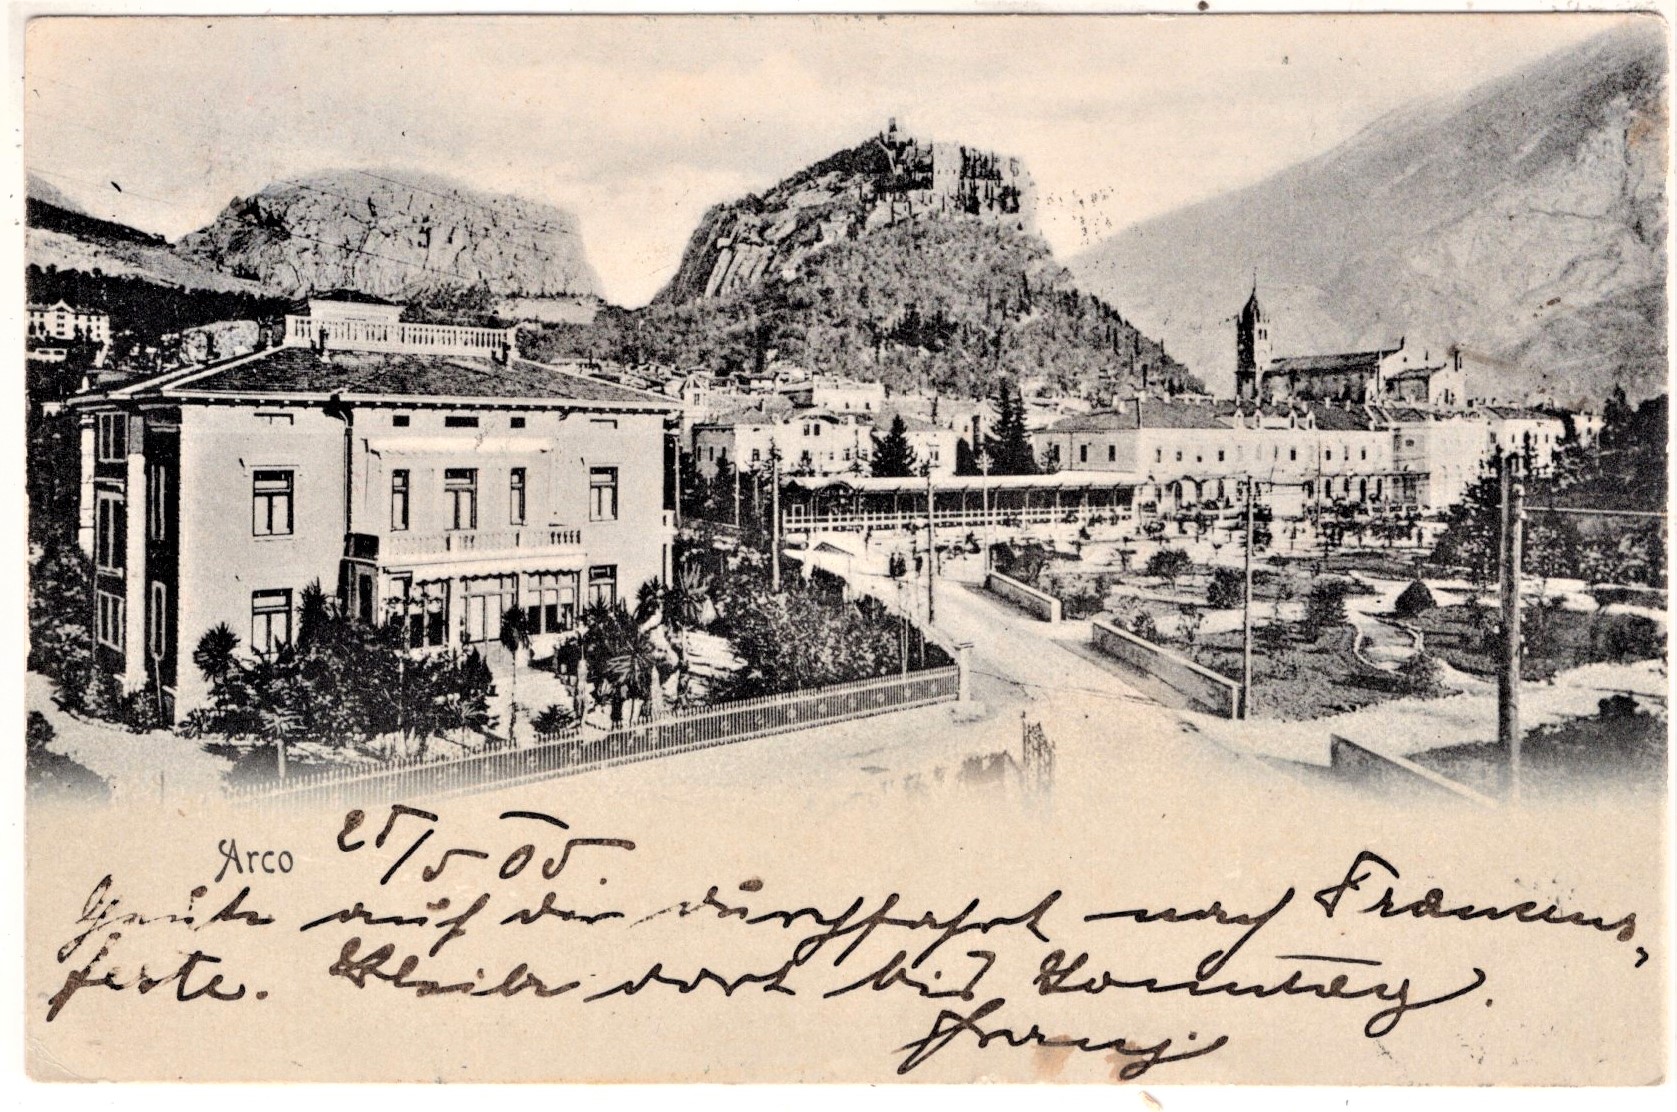 Arco 25/5 05.
Heute auf der durchfahrt nach Franzens-
feste. Bleibe dort bis Sonntag.
Franz